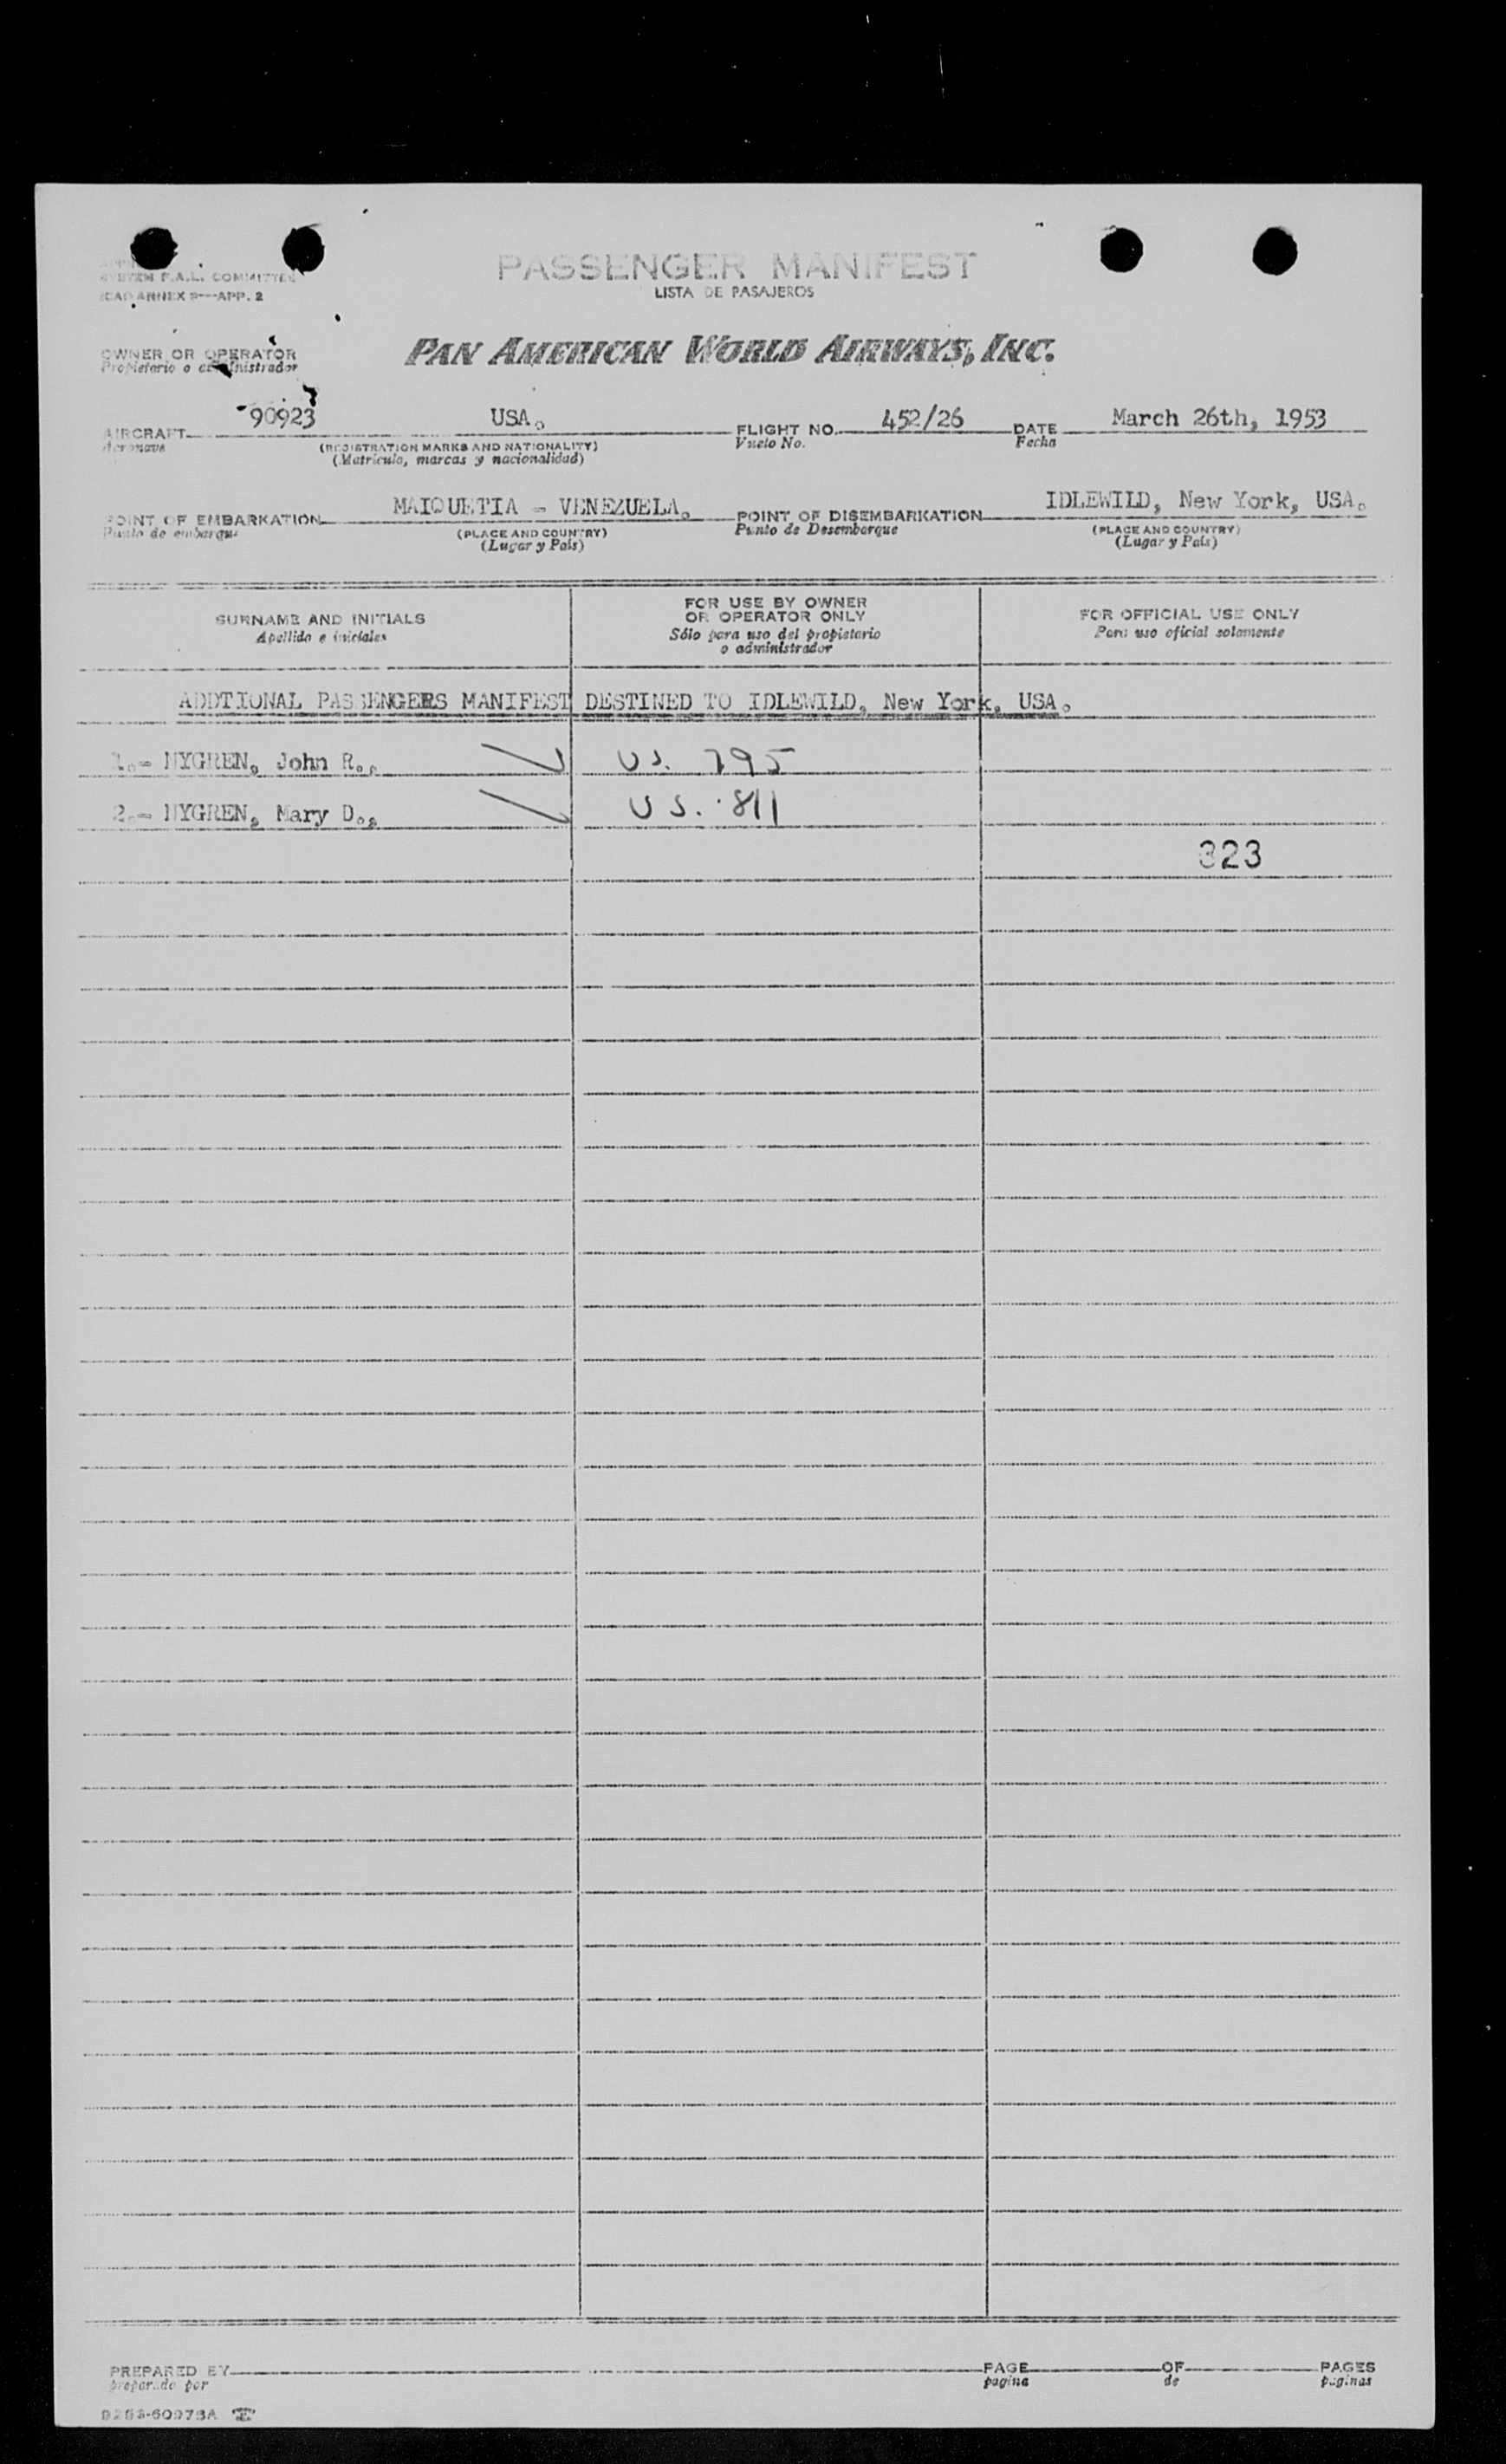 PASSENGER MANIFEST
LISTA DE PASAJEROS
SYSTEM F.A.L. COMMITTEE
ICAO ANNEX 9—APP. 2
OWNER OR OPERATOR
Propietario o administrador
PAN AMERICAN WORLD AIRWAYS, INC.
AIRCRAFT 90923 USA. FLIGHT NO. 452/26 DATE March 26th, 1953
Aeronave (REGISTRATION MARKS AND NATIONALITY) Vuelo No. Fecha
(Matrícula, marcas y nacionalidad)
POINT OF EMBARKATION MAIQUETIA - VENEZUELA. POINT OF DISEMBARKATION IDLEWILD, New York, USA.
Punto de embarque (PLACE AND COUNTRY) Punto de Desembarque (PLACE AND COUNTRY)
(Lugar y País) (Lugar y País)
SURNAME AND INITIALS
Apellido e iniciales
FOR USE BY OWNER
OR OPERATOR ONLY
Sólo para uso del propietario
o administrador
FOR OFFICIAL USE ONLY
Para uso oficial solamente
ADDTIONAL PASSENGERS MANIFEST DESTINED TO IDLEWILD, New York, USA.
1.- NYGREN, John R., US. 795
2.- NYGREN, Mary D., US. 811
323
PREPARED BY PAGE OF PAGES
preparado por pagina de paginas